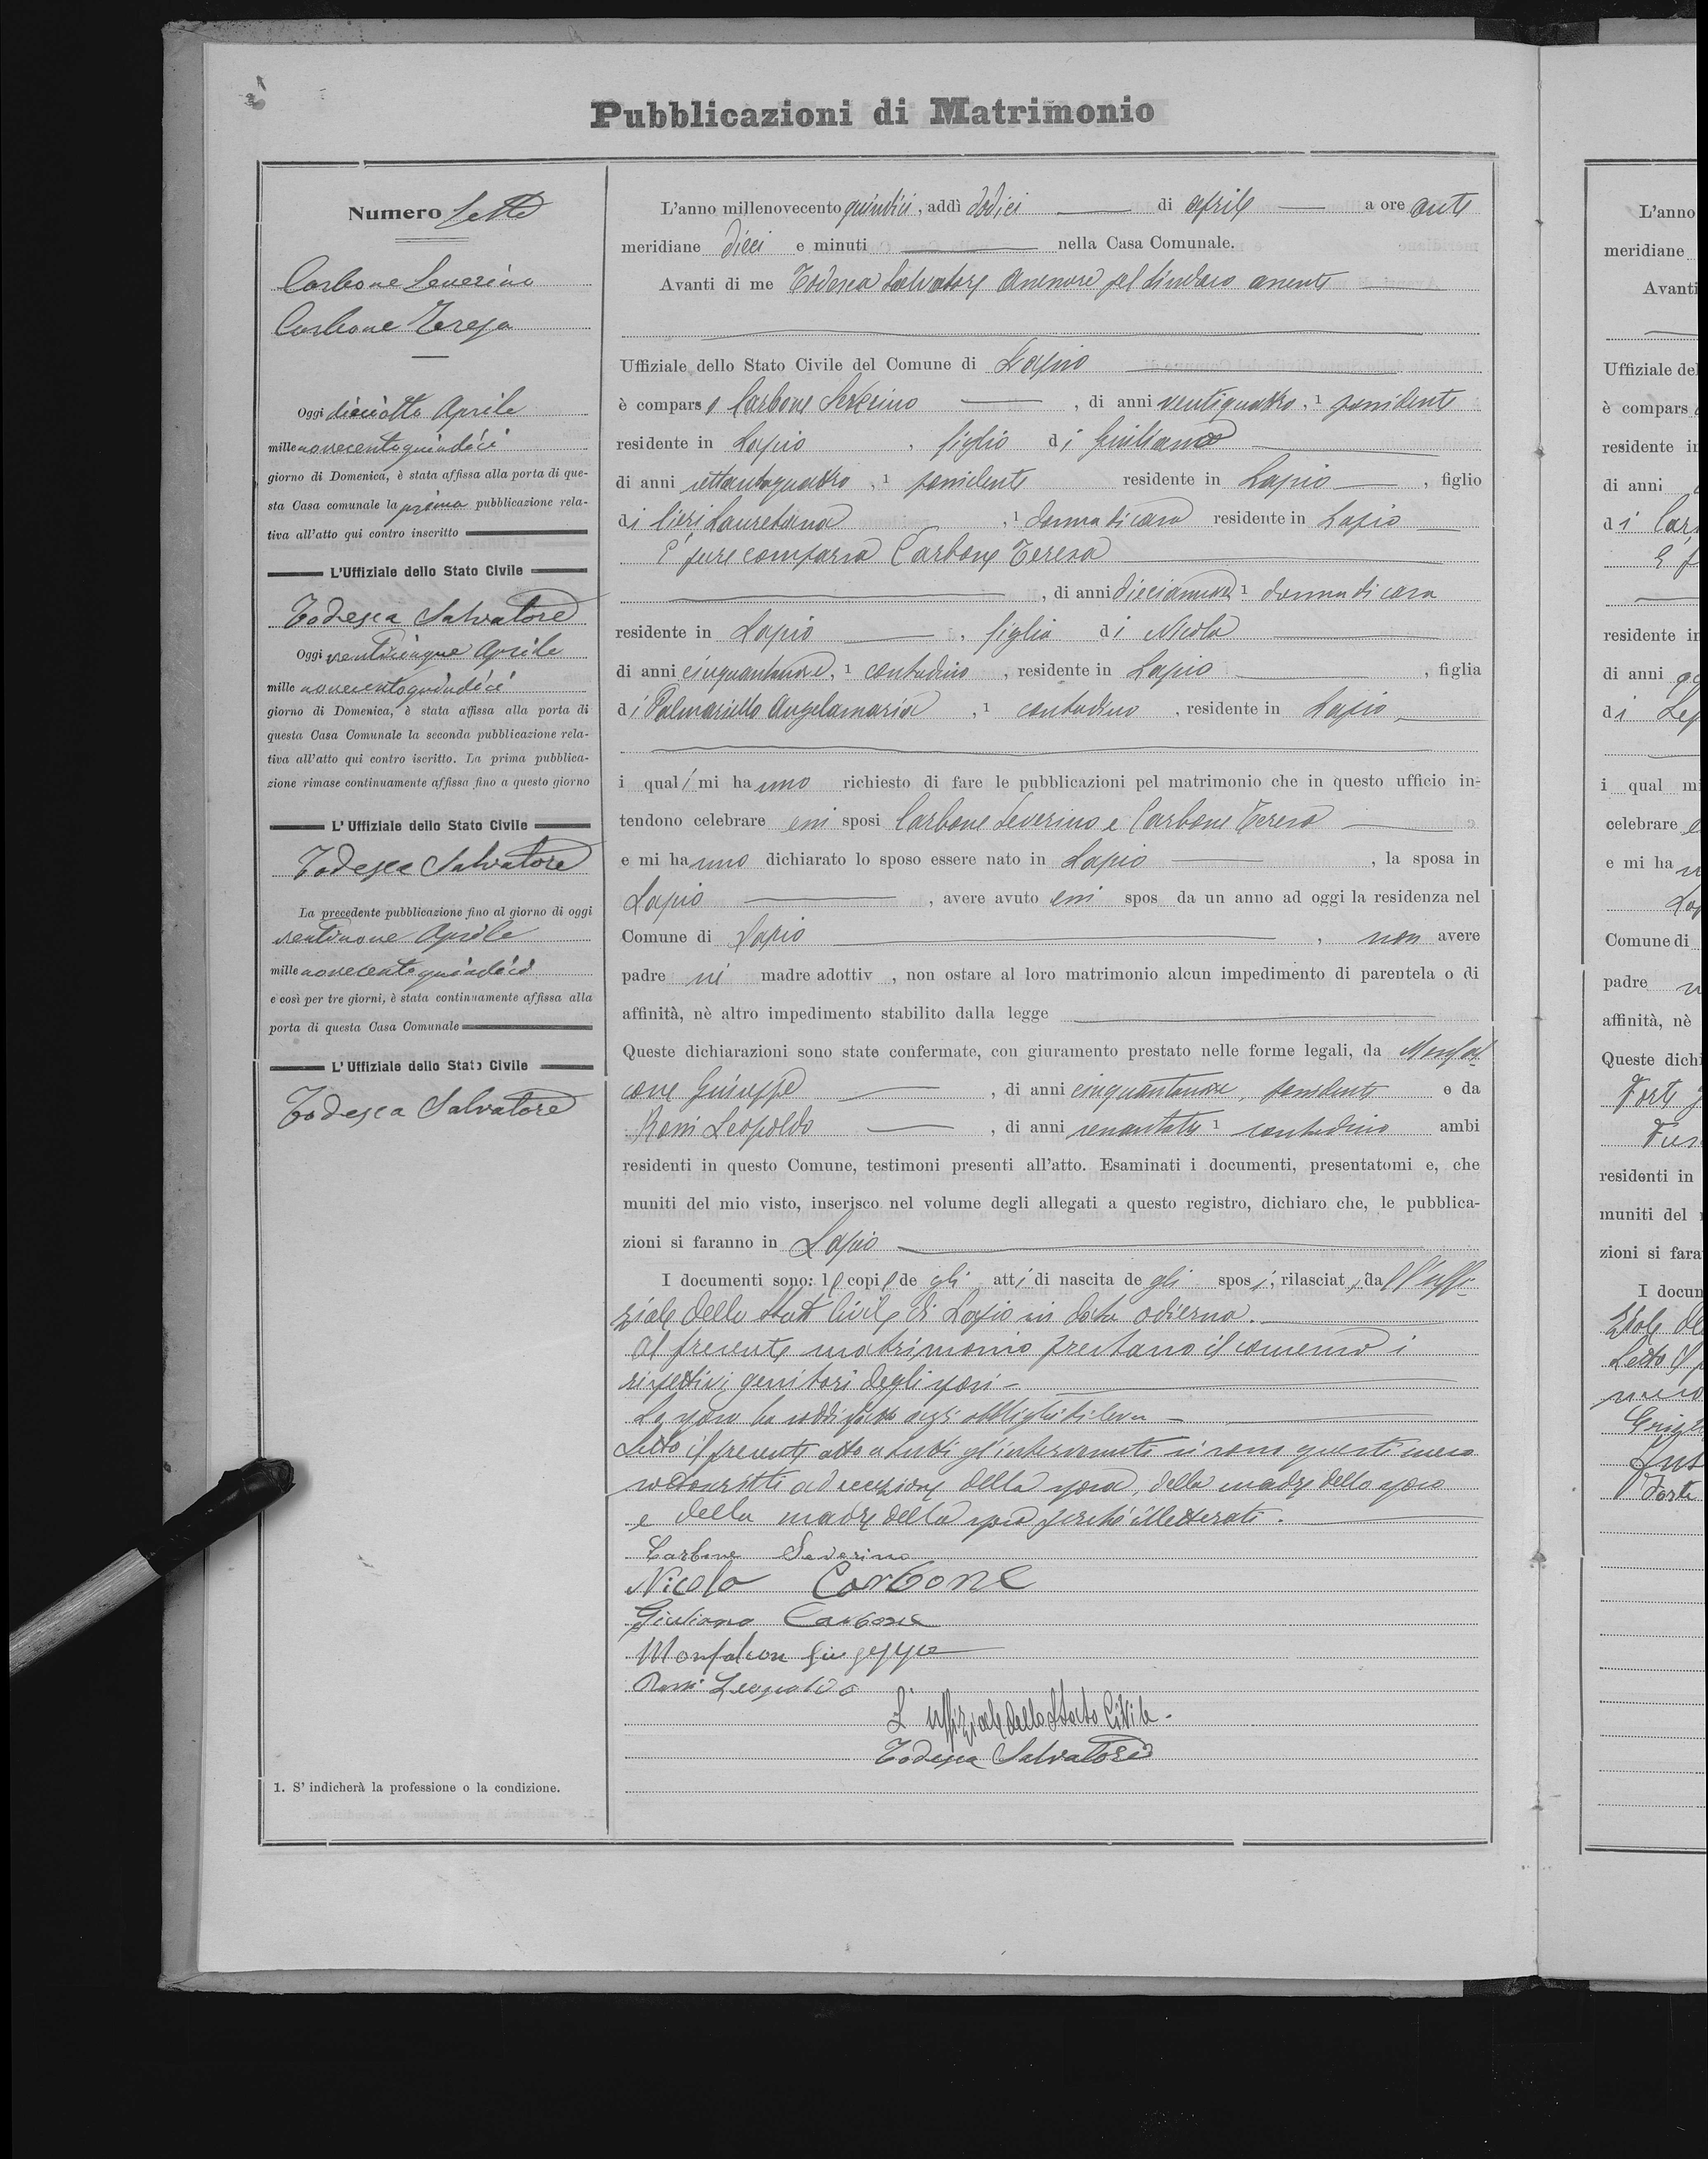 Pubblicazioni di Matrimonio
Numero Sette
Carbone Severino
Carbone Teresa
Oggi diciotto Aprile
mille novecentoquindici
giorno di Domenica, è stata affissa alla porta di que-
sta Casa comunale la prima pubblicazione rela-
tiva all'atto qui contro inscritto
L'Uffiziale dello Stato Civile
Todesca Salvatore
Oggi venticinque Aprile
mille novecentoquindici
giorno di Domenica, è stata affissa alla porta di
questa Casa Comunale la seconda pubblicazione rela-
tiva all'atto qui contro iscritto. La prima pubblica-
zione rimase continuamente affissa fino a questo giorno
L'Uffiziale dello Stato Civile
Todesca Salvatore
La precedente pubblicazione fino al giorno di oggi
ventinove Aprile
mille novecentoquindici
e così per tre giorni, è stata continuamente affissa alla
porta di questa Casa Comunale
L'Uffiziale dello Stato Civile
Todesca Salvatore
1. S' indicherà la professione o la condizione.
L'anno millenovecento quindici, addì dodici di aprile a ore anti
meridiane dieci e minuti nella Casa Comunale.
Avanti di me Todesca Salvatore Assessore pel Sindaco assente
Uffiziale dello Stato Civile del Comune di Lapio
è comparso Carbone Severino, di anni ventiquattro, 1 possidente
residente in Lapio, figlio di Giuliano
di anni settantaquattro, 1 possidente residente in Lapio, figlio
di Pieri Lauretana, 1 donna di casa residente in Lapio
E' pure comparsa Carbone Teresa
, di anni diciannove 1 donna di casa
residente in Lapio, figlia di Nicola
di anni cinquantanove, 1 contadino, residente in Lapio, figlia
di Palmariello Angelamaria, 1 contadina, residente in Lapio,
i quali mi hanno richiesto di fare le pubblicazioni pel matrimonio che in questo ufficio in-
tendono celebrare essi sposi Carbone Severino e Carbone Teresa
e mi hanno dichiarato lo sposo essere nato in Lapio, la sposa in
Lapio, avere avuto essi spos da un anno ad oggi la residenza nel
Comune di Lapio, non avere
padre nè madre adottiv, non ostare al loro matrimonio alcun impedimento di parentela o di
affinità, nè altro impedimento stabilito dalla legge
Queste dichiarazioni sono state confermate, con giuramento prestato nelle forme legali, da Monfal
cone Giuseppe, di anni cinquantanove, possidente e da
Rossi Leopoldo, di anni 1 contadino ambi
residenti in questo Comune, testimoni presenti all'atto. Esaminati i documenti, presentatomi e, che
muniti del mio visto, inserisco nel volume degli allegati a questo registro, dichiaro che, le pubblica-
zioni si faranno in Lapio
I documenti sono: le copie de gli atti di nascita de gli sposi; rilasciate, dall'uffi-
ziale dello Stato Civile di Lapio in data odierna.
Al presente matrimonio prestano il consenso i
rispettivi genitori degli sposi
Lo sposo ha soddisfatto agli obblighi di leva
Letto il presente atto a tutti gl'intervenuti si sono questi meco
sottoscritti ad eccezione della sposa, della madre dello sposo
e della madre della sposa perchè illetterate.
Carbone Severino
Nicola Carbone
Giuliano Carbone
Monfalcon Giuseppe
Rossi Leopoldo
L'uffiziale dello Stato Civile.
Todesca Salvatore
L'anno
meridiane
Avanti
Uffiziale del
è compars
residente in
di anni
di Car
E p
residente in
di anni
di
i qual mi
celebrare
e mi ha
Comune di
padre
affinità, nè
Queste dichi
Forte
residenti in
muniti del
zioni si fara
I docum
Letto il p
Forte